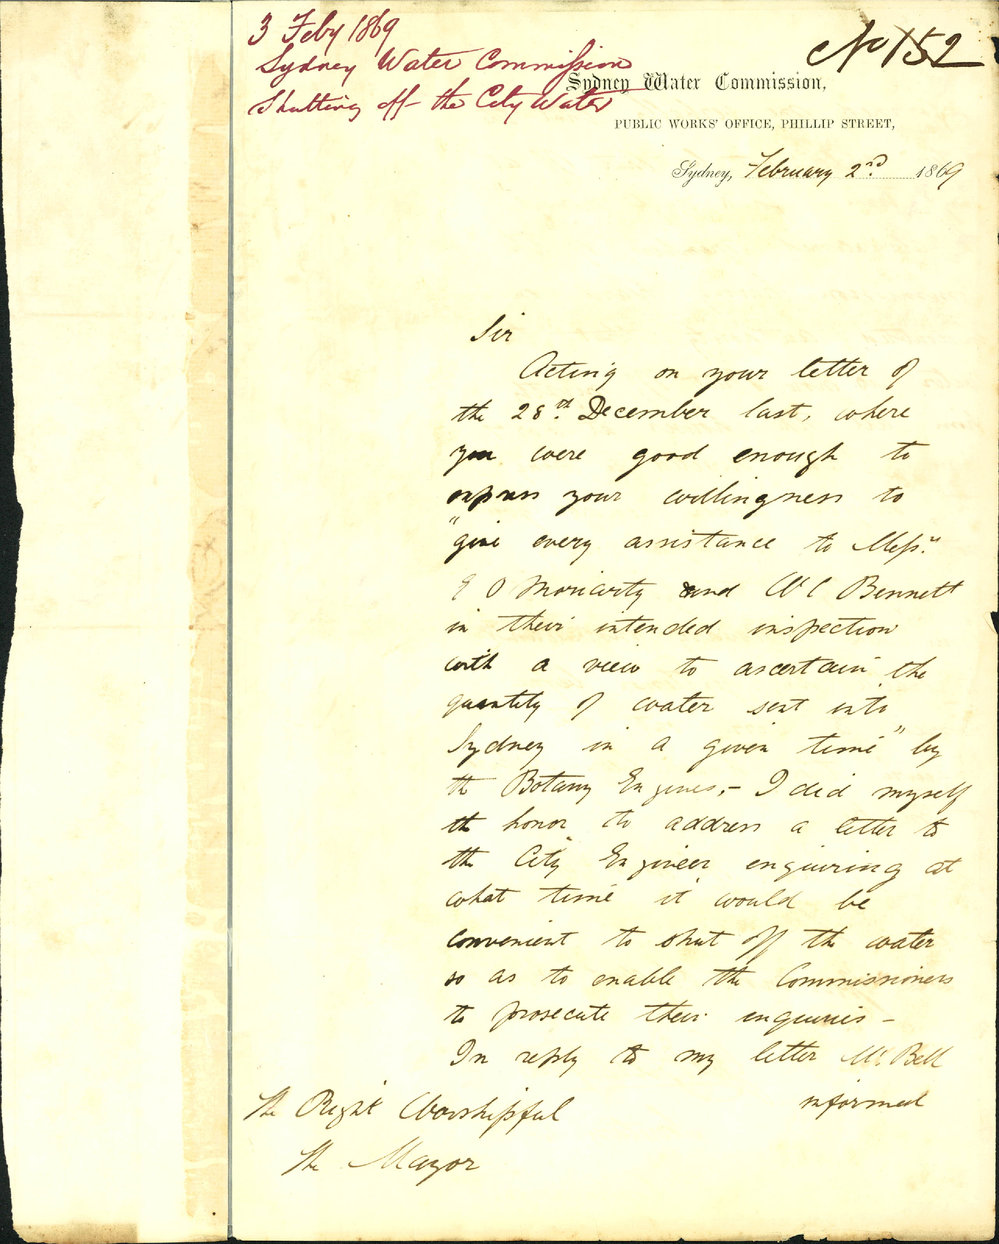 3 Feby 1869
Sydney Water Commission
Shutting off the City Water
No 152
Sydney Water Commission,
PUBLIC WORKS' OFFICE, PHILLIP STREET,
Sydney, February 2nd 1869
Sir
Acting on your letter of
the 28th December last, where
you were good enough to
express your willingness to
"give every assistance to Messrs
E O Moriarty and W C Bennett
in their intended inspection
with a view to ascertain the
quantity of water sent into
Sydney in a given time" by
the Botany Engines,- I did myself
the honor to address a letter to
the City Engineer enquiring at
what time it would be
convenient to shut off the water
so as to enable the Commissioners
to prosecute their enquiries -
In reply to my letter Mr. Bell
informed
The Right Worshipful
The Mayor